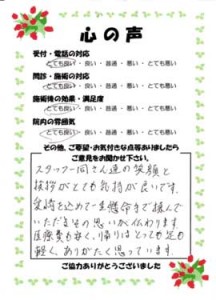 心の声
受付・電話の対応
とても良い・良い・普通・悪い・とても悪い
問診・施術の対応
とても良い・良い・普通・悪い・とても悪い
施術後の効果・満足度
とても良い・良い・普通・悪い・とても悪い
院内の雰囲気
とても良い・良い・普通・悪い・とても悪い
その他、ご要望・お気付きな点等ありましたら
ご意見をお聞かせ下さい。
スタッフ一同さん達の笑顔と
挨拶がとても気持が良いです。
気持を込めて一生懸命まで接んで
いただきもの思いが伝わります。
医療費も安く、帰りはとっても足も
軽く、ありがたく思っています
ご協力ありがとうございました